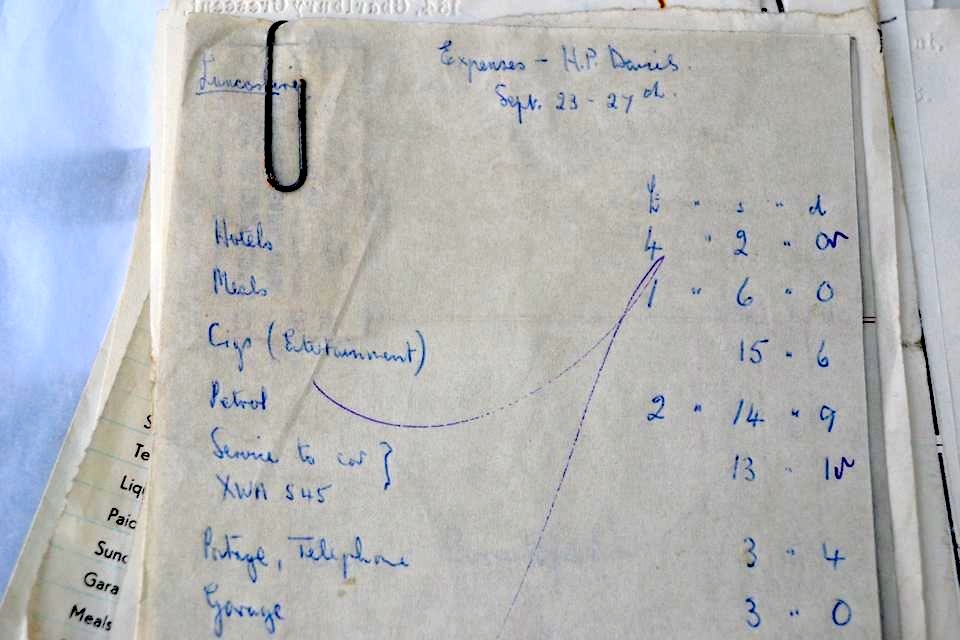 Lancashire
Expenses - H.P. Davies.
Sept. 23 - 27th.
£ " s " d
Hotels 4 " 2 " 0
Meals 1 " 6 " 0
Cigs (Entertainment) 15 " 6
Petrol 2 " 14 " 9
Service to car } 13 " 1
XWA 545
Postage, Telephone 3 " 4
Garage 3 " 0
S
Te
Liq
Paid
Sund
Gara
Meals